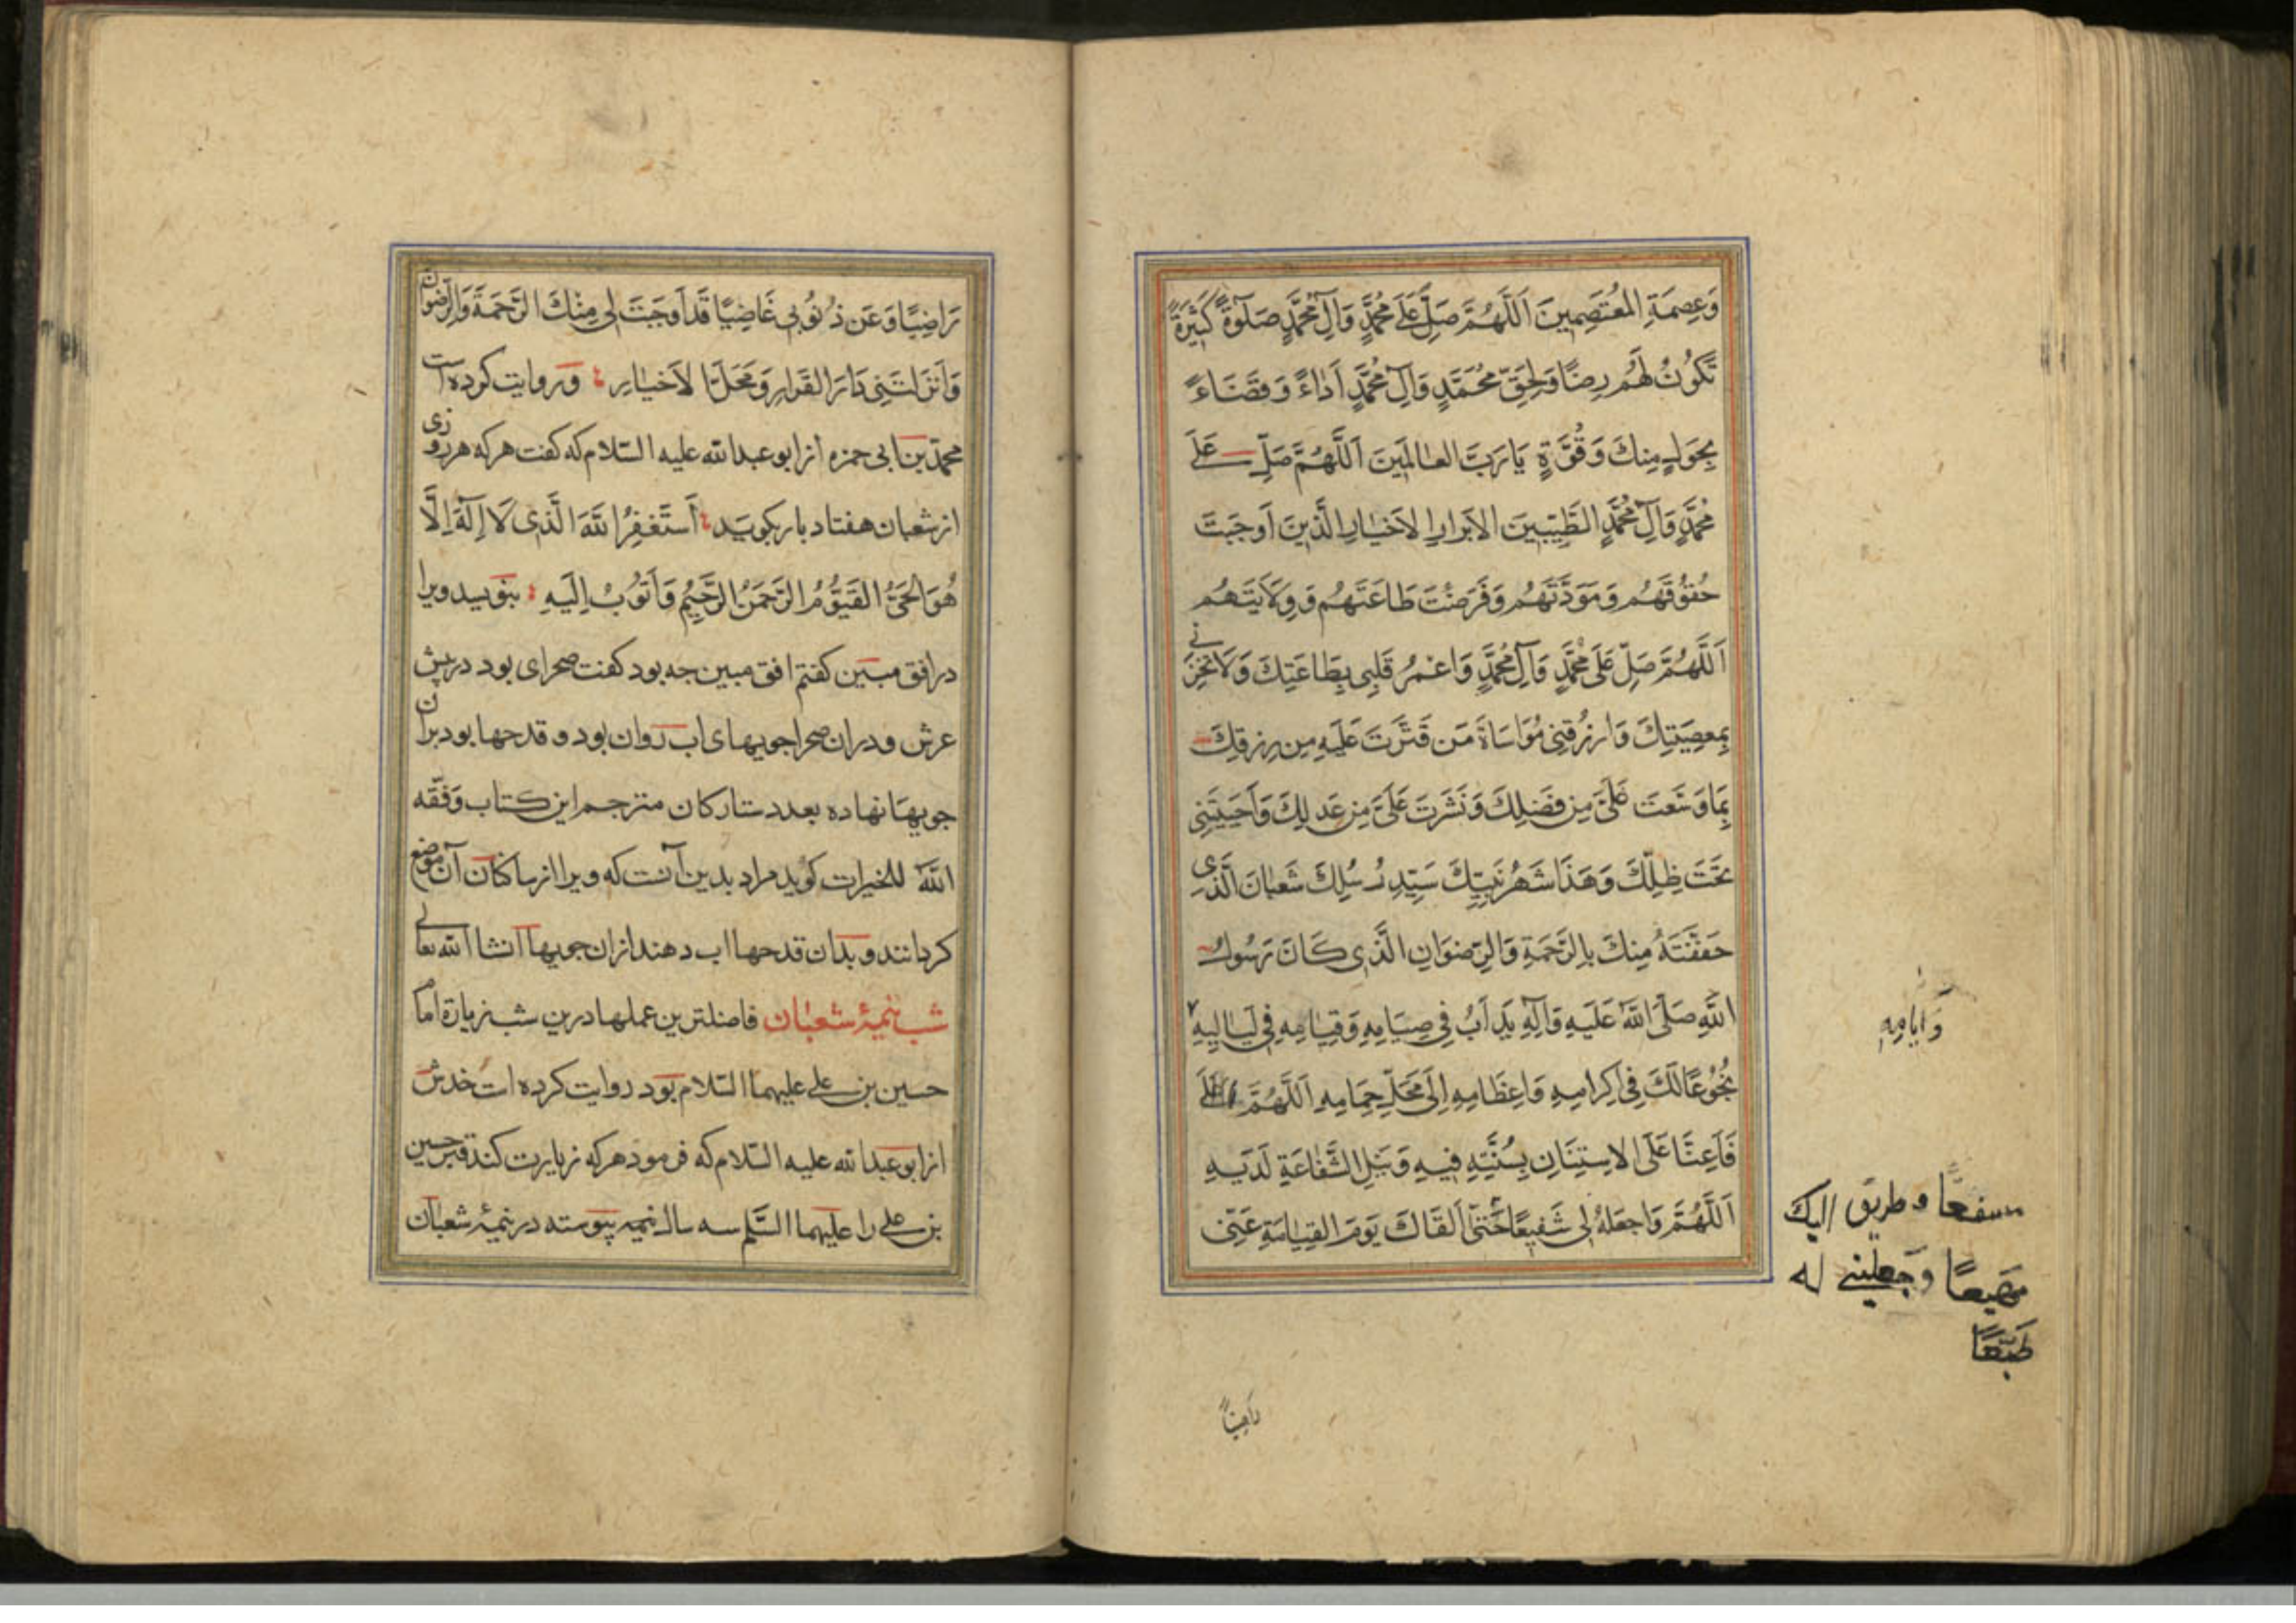 وَعِصمَةِ المُعتَصِمينَ اَللَّهُمَّ صَلِّ عَلَى مُحَمَّدٍ وَآلِ مُحَمَّدٍ صَلٰوةً كَثيرَةً
تَكُونُ لَهُم رِضًا وَلِحَقِّ مُحَمَّدٍ وَآلِ مُحَمَّدٍ اَدَاءً وَقَضَاءً
بِحَولٍ مِنكَ وَقُوَّةٍ يَا رَبَّ العَالَمينَ اَللَّهُمَّ صَلِّ عَلَى
مُحَمَّدٍ وَآلِ مُحَمَّدٍ الطَّيِّبينَ الاَبرارِ الاَخيارِ الَّذينَ اَوجَبتَ
حُقُوقَهُم وَمَوَدَّتَهُم وَفَرَضتَ طَاعَتَهُم وَوِلَايَتَهُم
اَللَّهُمَّ صَلِّ عَلَى مُحَمَّدٍ وَآلِ مُحَمَّدٍ وَاعمُر قَلبِى بِطَاعَتِكَ وَلَا تُخزِنى
بِمَعصِيَتِكَ وَارزُقنِى مُوَاسَاةَ مَن قَتَّرتَ عَلَيهِ مِن رِزقِكَ
بِمَا وَسَّعتَ عَلَىَّ مِن فَضلِكَ وَنَشَرتَ عَلَىَّ مِن عَدلِكَ وَاَحيَيتَنِى
تَحتَ ظِلِّكَ وَهَذَا شَهرُ نَبِيِّكَ سَيِّدِ رُسُلِكَ شَعبَانَ الَّذى
حَفَفتَهُ مِنكَ بِالرَّحمَةِ وَالرِّضوَانِ الَّذى كَانَ رَسُولُ
اللهِ صَلَّى اللهُ عَلَيهِ وَآلِهِ يَداَبُ فِى صِيَامِهِ وَقِيَامِهِ فِى لَيَالِيهِ
وَاَيَّامِهِ
بُخُوعًا لَكَ فِى اِكرَامِهِ وَاِعظَامِهِ اِلَى مَحَلِّ حِمَامِهِ اَللَّهُمَّ
فَاَعِنَّا عَلَى الاِستِنَانِ بِسُنَّتِهِ فِيهِ وَنَيلِ الشَّفَاعَةِ لَدَيهِ
اَللَّهُمَّ وَاجعَلهُ لِى شَفِيعًا حَتّى اَلقَاكَ يَومَ القِيَامَةِ عَنِّى
مشفعًا وطريق اليك
مهيعًا وجعلنى له
متبعًا
راضيًا
رَاضِيًا وَعَن ذُنُوبِى غَاضِيًا قَد اَوجَبتَ لِى مِنكَ الرَّحمَةَ وَالرِّضوان
وَاَنزَلتَنِى دَارَ القَرارِ وَمَحَلَّ الاَخيَارِ وروايت كرده است
محمّد بن ابى حمزه از ابو عبدالله عليه السّلام كه كفت هركه هرروزى
از شعبان هفتاد بار بكويد اَستَغفِرُ اللهَ الَّذِى لَا اِلَهَ اِلَّا
هُوَ الحَىُّ القَيُّومُ الرَّحمَنُ الرَّحِيمُ وَاَتُوبُ اِلَيهِ بنويسد ويرا
در افق مبين كفتم افق مبين جه بود كفت صحراى بود در پيش
عرش ودران صحرا جويهاى اب روان بود وقدحها بود بران
جويها نهاده بعدد ستاركان مترجم اين كتاب وفّقه
الله للخيرات كويد مراد بدين آنست كه ويرا از ساكنان آن موضع
كردانند وبدان قدحها اب دهند ازان جويها انشا الله تعالى
شب نيمۀ شعبان فاضلترين عملها درين شب زيارة اما
حسين بن على عليهما السّلام بود روايت كرده است خدش
از ابو عبدالله عليه السّلام كه فرمود هركه زيارت كند قبر حسين
بن على را عليهما السّلم سه سال نيمه پيوسته در نيمۀ شعبان